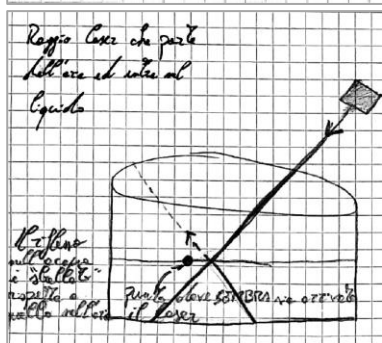 Raggio laser che parte
dall'aria ed entra nel
liquido
Il riflesso
nell'acqua
è "sballato"
rispetto a
quello nell'aria
punto dove SEMBRA sia arrivato
il laser